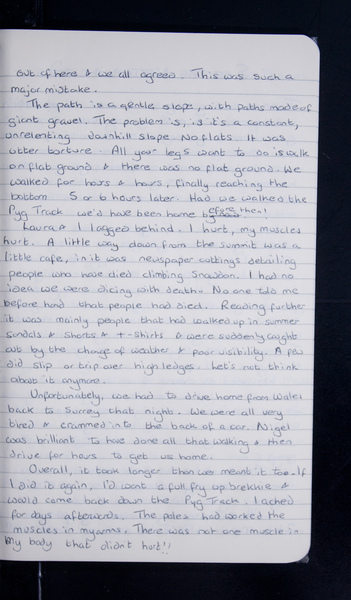 out of here & we all agreed. This was such a
major mistake.
The path is a gentle slope, with paths made of
giant gravel. The problem is, is it's a constant,
unrelenting downhill slope. No flats. It was
utter torture. All your legs want to do is walk
on flat ground & there was no flat ground. We
walked for hours & hours, finally reaching the
bottom 5 or 6 hours later. Had we walked the
Pyg Track we'd have been home before then!
Laura & I lagged behind. I hurt, my muscles
hurt. A little way down from the summit was a
little cafe, in it was newspaper cuttings detailing
people who have died climbing Snowdon. I had no
idea we were dicing with death. No one told me
before hand that people had died. Reading further
it was mainly people that had walked up in summer
sandals & shorts & t-shirts & were suddenly caught
out by the change of weather & poor visibility. A few
did slip or trip over high ledges. Let's not think
about it anymore.
Unfortunately, we had to drive home from Wales
back to Surrey that night. We were all very
tired & crammed into the back of a car. Nigel
was brilliant to have done all that walking & then
drive for hours to get us home.
Overall, it took longer than we meant it too. If
I did it again, I'd want a full fry up brekkie &
would come back down the Pyg Track. I ached
for days afterwards. The poles had worked the
muscles in my arms. There was not one muscle in
my body that didn't hurt!!